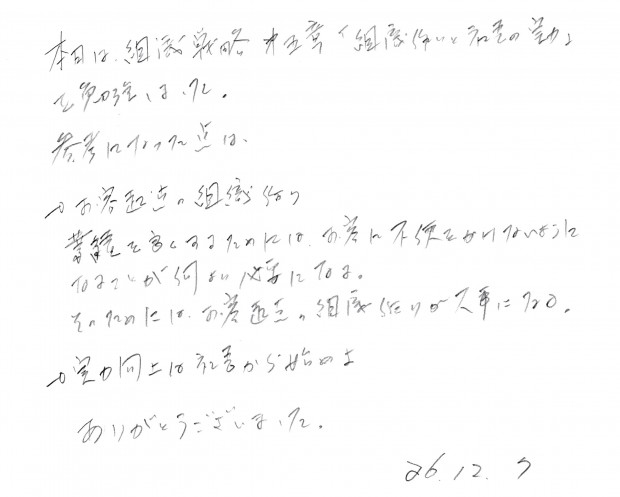 本日は、組織戦略 第五章「組織作りと社長の実力」
を勉強しました。
参考になった点は、
→お客起点の組織作り
業績を良くするためには、お客に不便をかけないように
なることが何より必要になる。
そのためには、お客起点の組織作りが大事になる。
→実力向上は社長から始めよ
ありがとうございました。
26.12.7